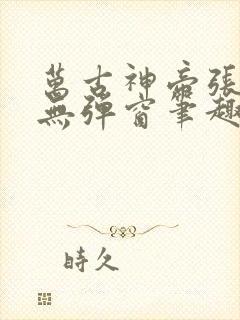 萬古神帝張
無彈窗筆趣
時久